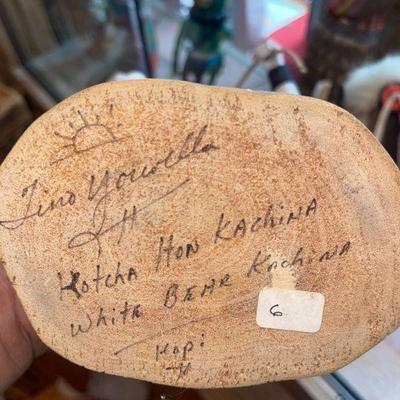 Tino Youvella
Hotcha Hon Kachina
White Bear Kachina
6
Hopi